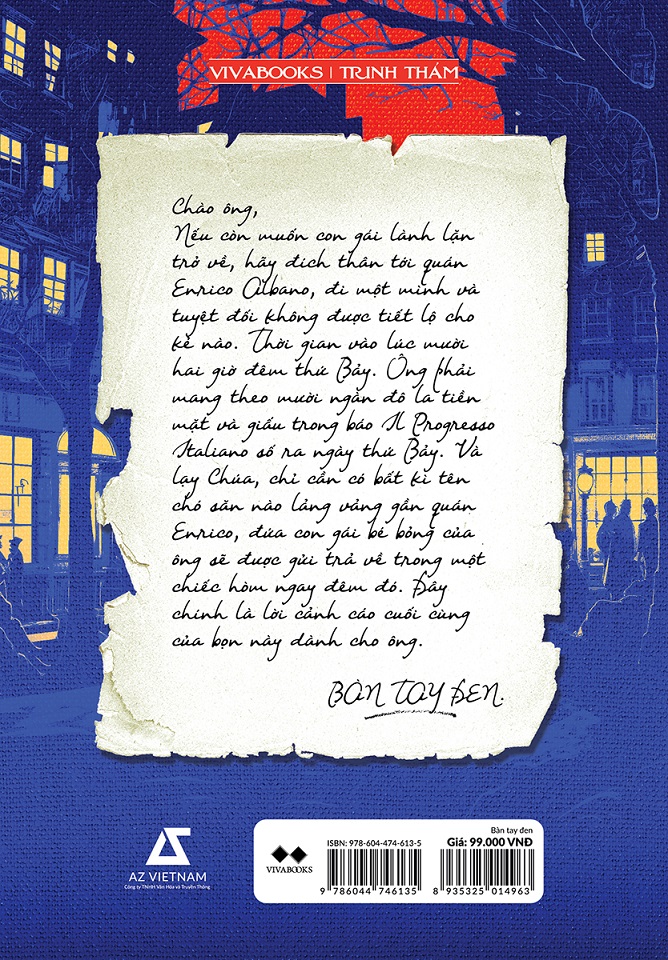 VIVABOOKS | TRINH THÁM
Chào ông,
Nếu còn muốn con gái lành lặn
trở về, hãy đích thân tới quán
Enrico Albano, đi một mình và
tuyệt đối không được tiết lộ cho
kẻ nào. Thời gian vào lúc mười
hai giờ đêm thứ Bảy. Ông phải
mang theo mười ngàn đô la tiền
mặt và giấu trong báo Il Progresso
Italiano số ra ngày thứ Bảy. Và
lạy Chúa, chỉ cần có bất kì tên
chó săn nào lảng vảng gần quán
Enrico, đứa con gái bé bỏng của
ông sẽ được gửi trả về trong một
chiếc hòm ngay đêm đó. Đây
chính là lời cảnh cáo cuối cùng
của bọn này dành cho ông.
BÀN TAY ĐEN.
AZ VIETNAM
Công ty TNHH Văn Hóa và Truyền Thông
VIVABOOKS
Bàn tay đen
ISBN: 978-604-474-613-5
Giá: 99.000 VNĐ
9 786044 746135
8 935325 014963